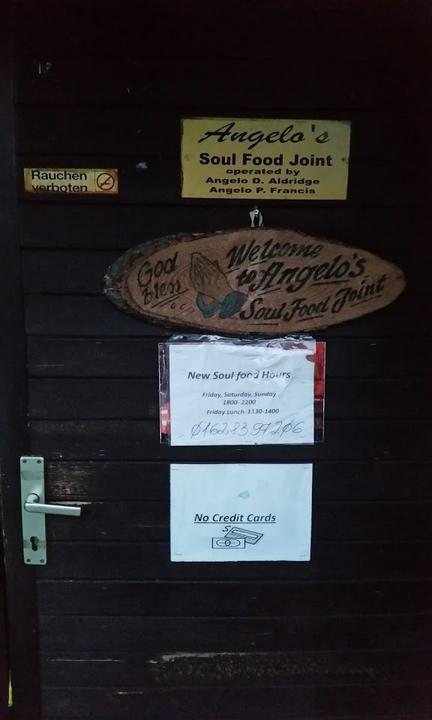 Angelo's
Soul Food Joint
operated by
Angelo D. Aldridge
Angelo P. Francis
Rauchen
verboten
God
bless
Welcome
to Angelo's
Soul Food Joint
New Soul food Hours
Friday, Saturday, Sunday
1800-2200
Friday Lunch 1130-1400
01628397206
No Credit Cards